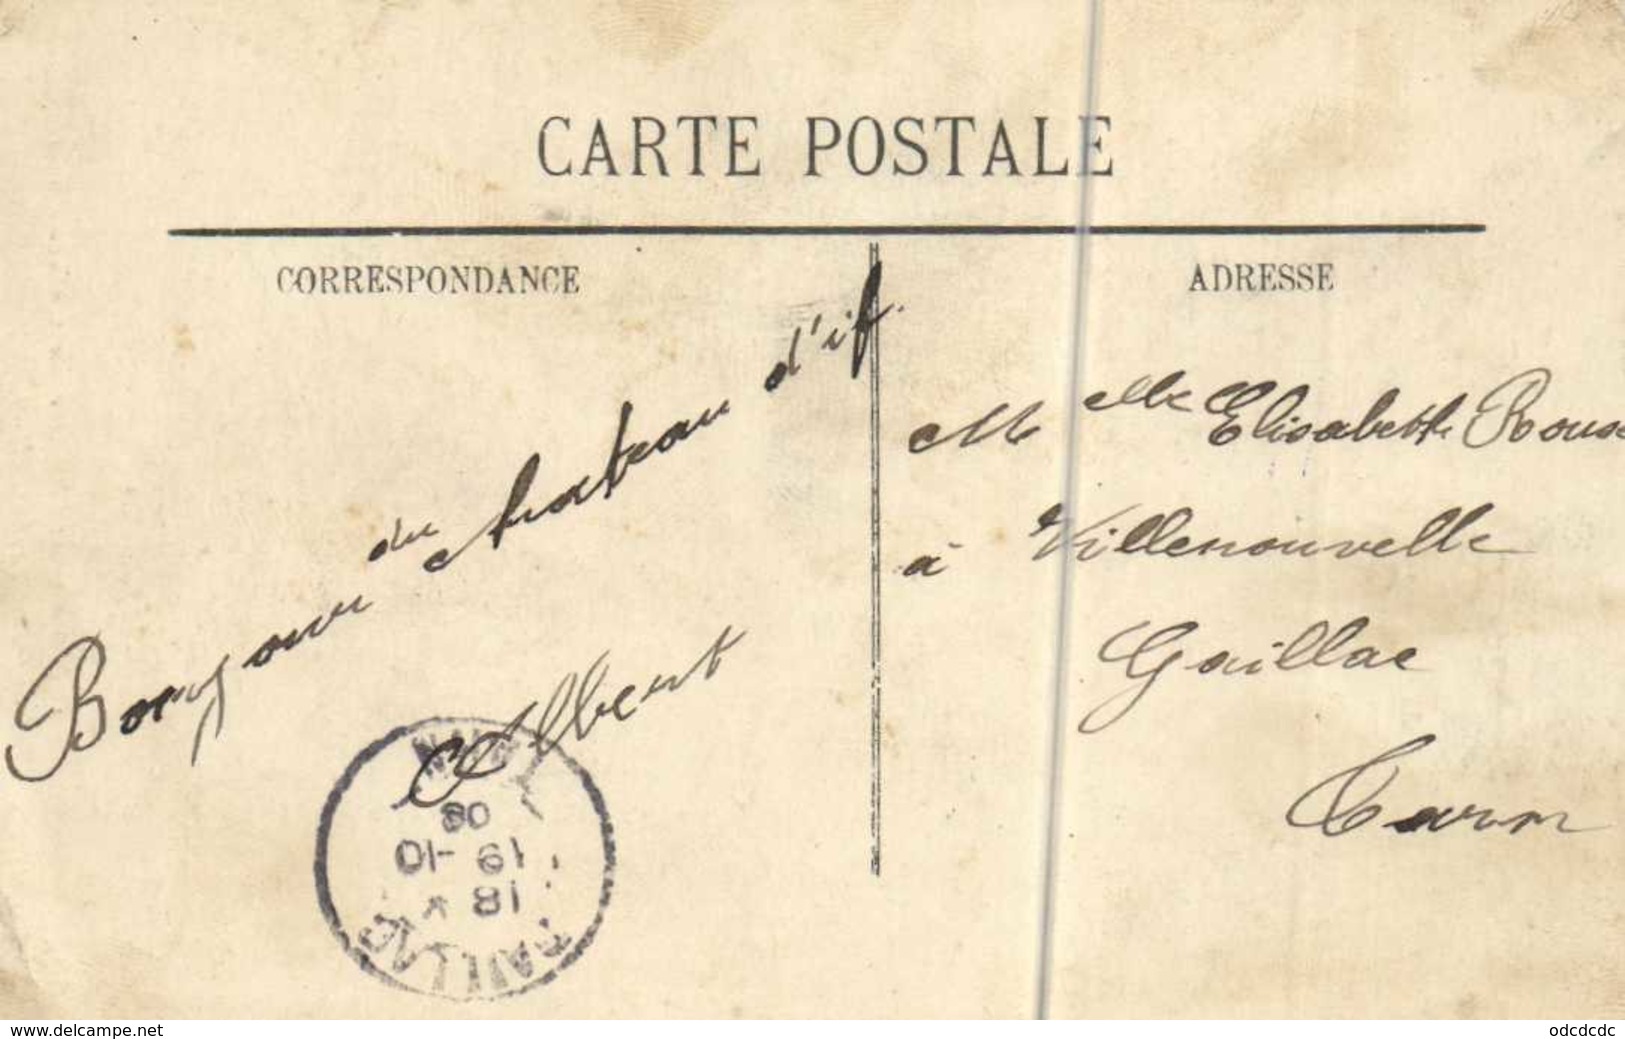 CARTE POSTALE
CORRESPONDANCE
ADRESSE
Bonjour du chateau d'if.
Albert
M elle Elisabeth
à Villenouvelle
Gaillac
Tarn
GAILLAC
18 *
19 -10
08
TARN
www.delcampe.net
odcdcdc